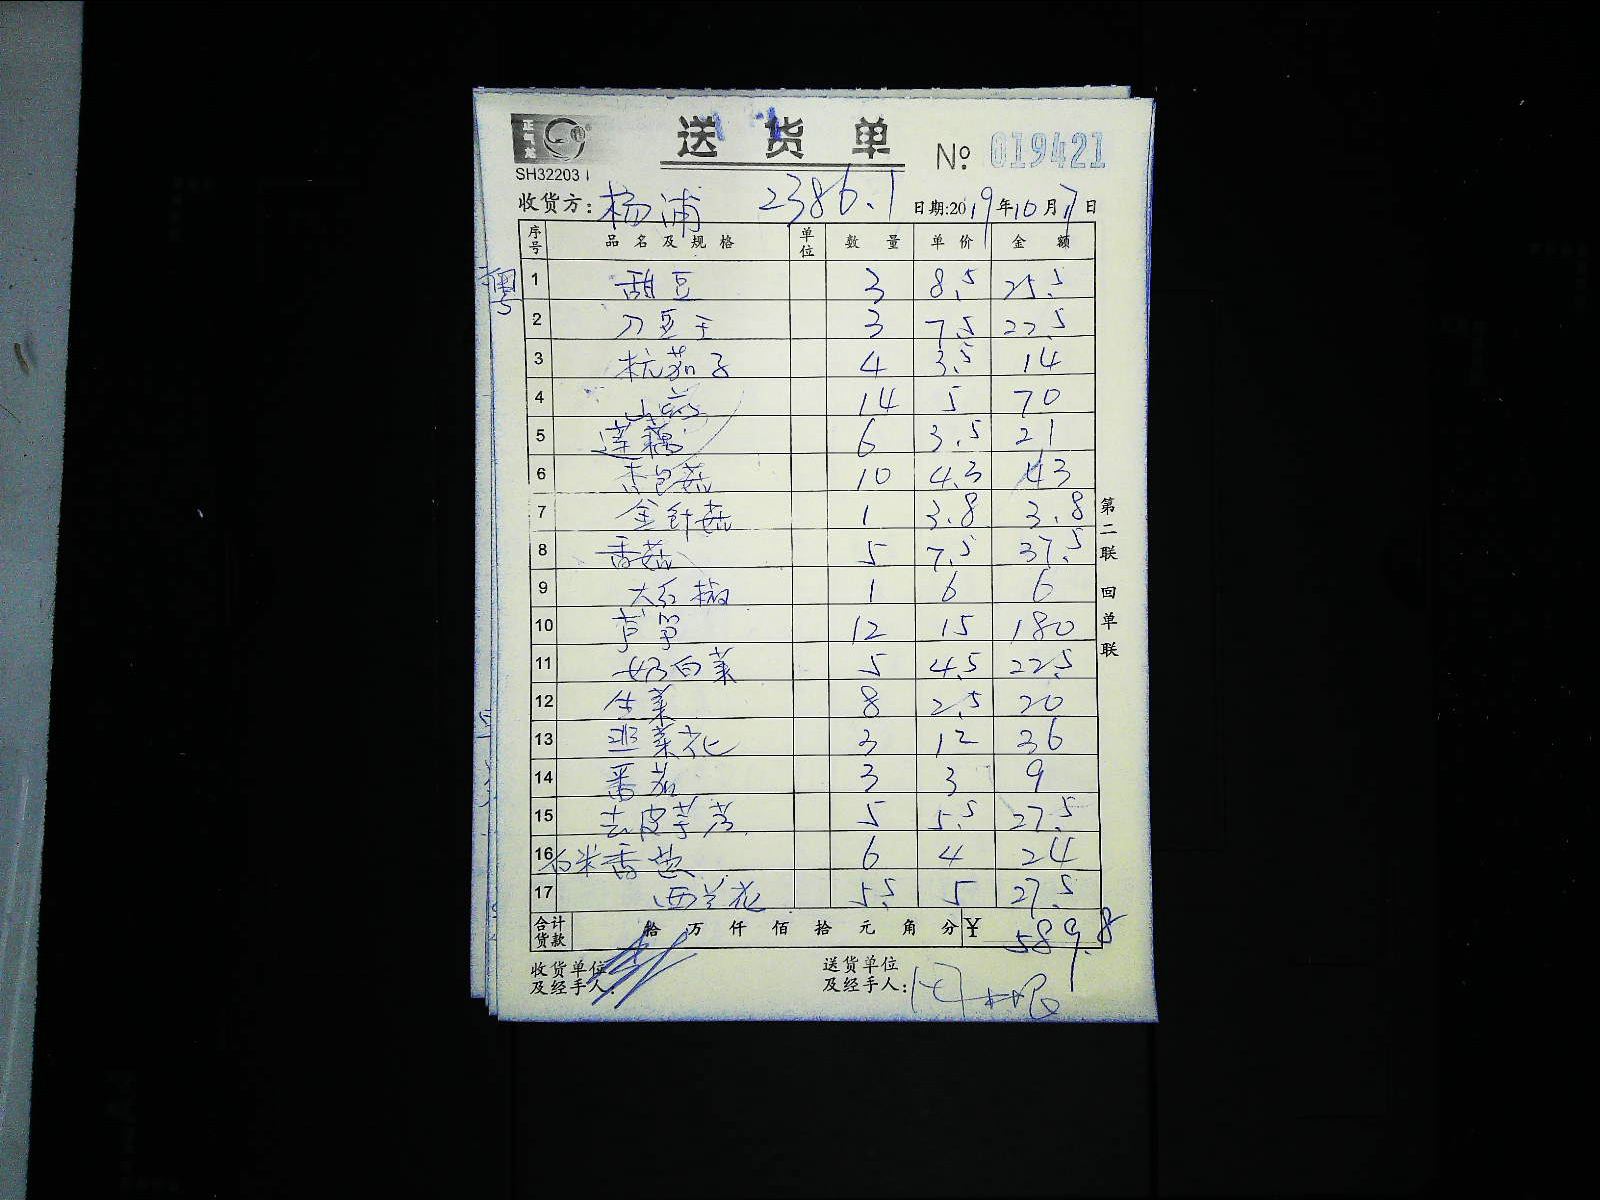 正气龙
送货单
№ 019421
SH322031
收货方: 杨浦 2386.1 日期:2019年10月17日
序号 品名及规格 单位 数量 单价 金额
1 甜豆 3 8.5 25.5
2 刀豆王 3 7.5 22.5
3 杭茄子 4 3.5 14
4 山药 14 5 70
5 莲藕 6 3.5 21
6 杏包菇 10 4.3 43
7 金针菇 1 3.8 3.8
8 香菇 5 7.5 37.5
9 大红椒 1 6 6
10 芦笋 12 15 180
11 奶白菜 5 4.5 22.5
12 生菜 8 2.5 20
13 韭菜花 3 12 36
14 番茄 3 3 9
15 去皮芋艿 5 5.5 27.5
16 香葱 6 4 24
17 西兰花 5.5 5 27.5
合计货款 拾 万 仟 佰 拾 元 角 分 ¥ 589.8
收货单位及经手人:
送货单位及经手人:
第二联 回单联